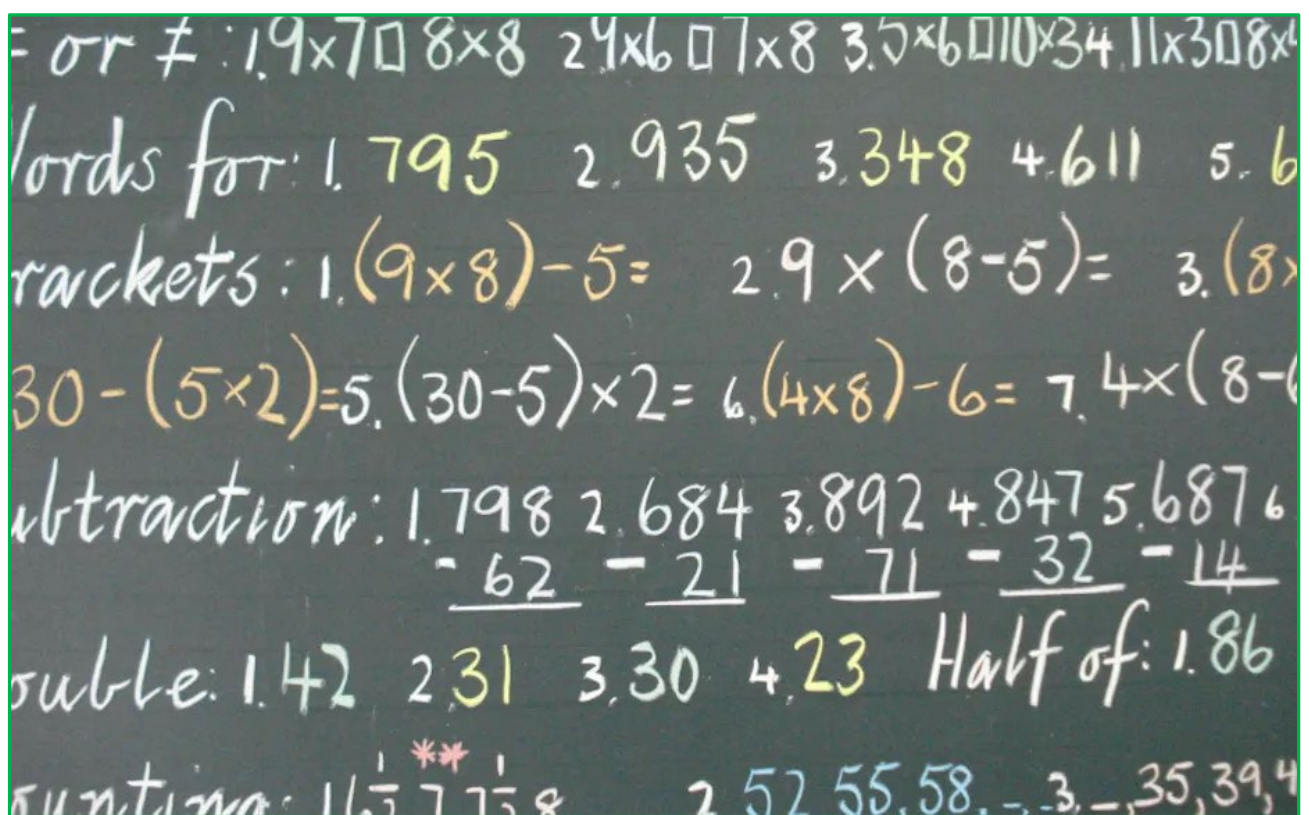 = or ≠ : 1. 9×7□8×8 2 9×6□7×8 3. 5×6□10×3 4. 11×3□8×
ords for: 1. 795 2. 935 3. 348 4. 611 5. 6
rackets: 1. (9×8)-5= 2. 9×(8-5)= 3. (8×
30-(5×2)= 5. (30-5)×2= 6. (4×8)-6= 7. 4×(8-
ubtraction: 1. 798 2. 684 3. 892 4. 847 5. 687 6
- 62 - 21 - 71 - 32 - 14
ouble: 1. 42 2 31 3. 30 4. 23 Half of: 1. 86
**
ounting: 2 52, 55, 58, _, _ 3. _, 35, 39, 4